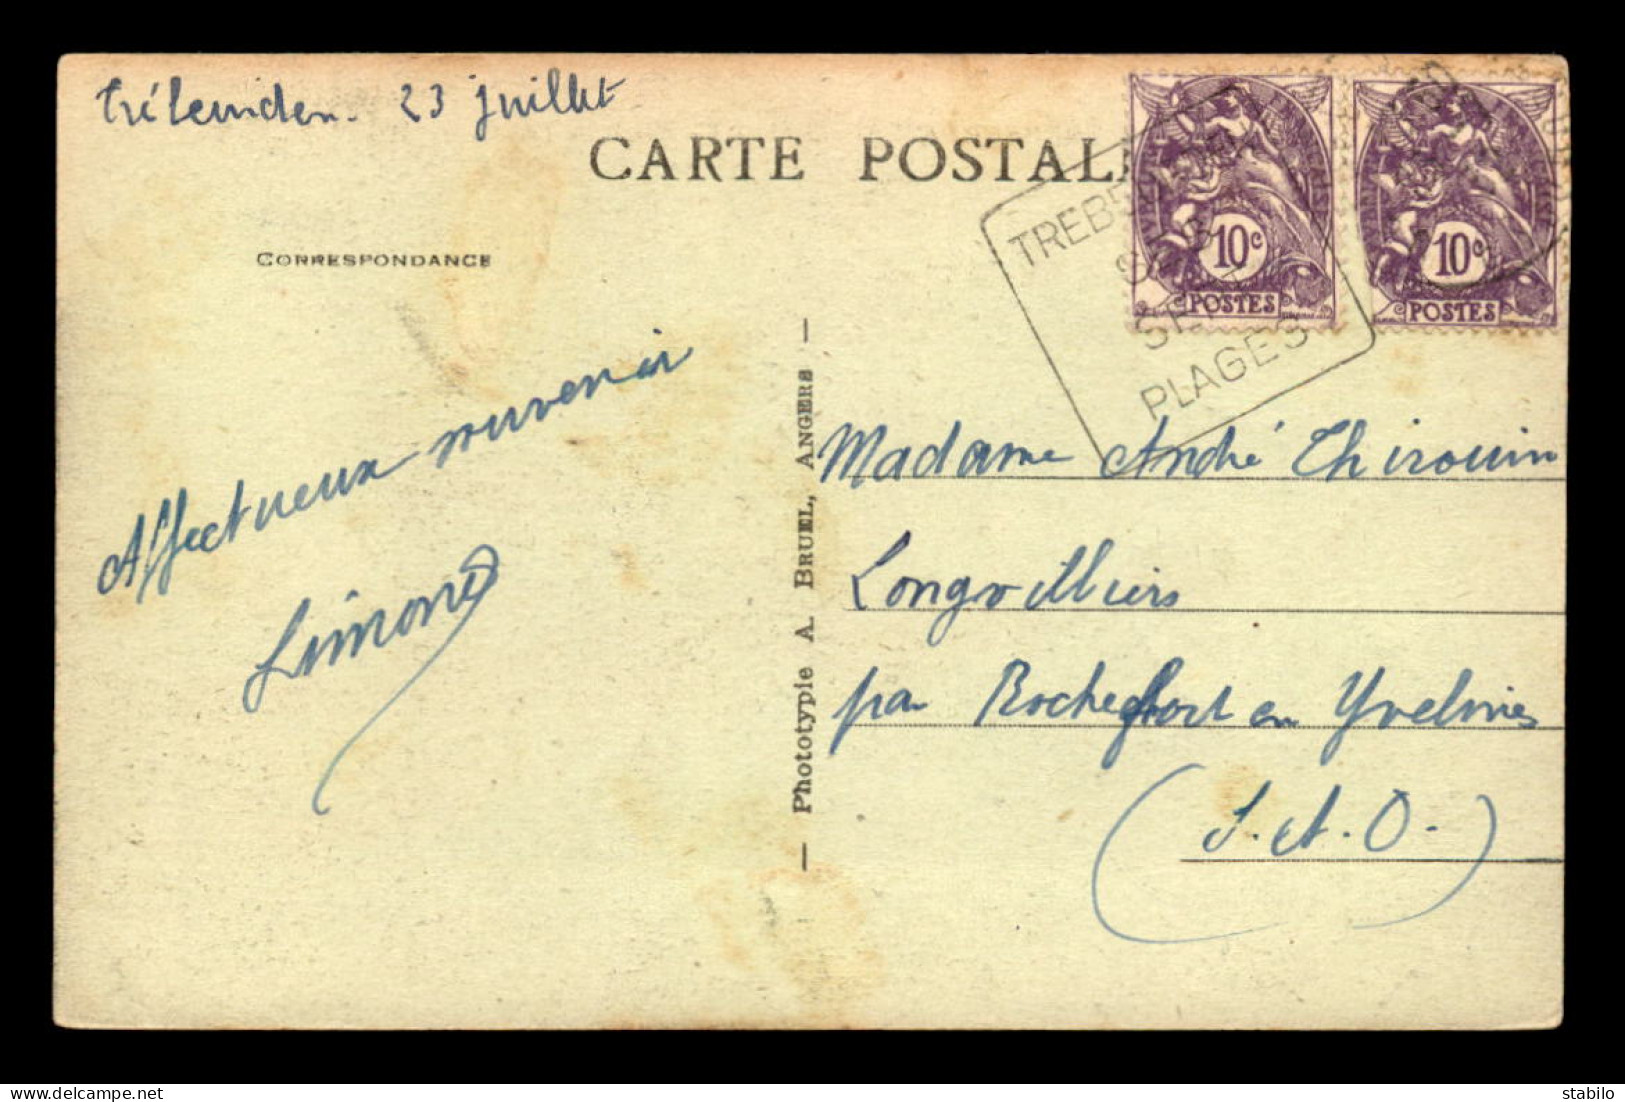 Trébeurden. 23 juillet
CARTE POSTALE
CORRESPONDANCE
TREBEURDEN
SES
SES
PLAGES
10c
POSTES
10c
POSTES
Affectueux souvenir
Simone
— Phototypie A. BRUEL, ANGERS —
Madame André Thirouin
Longvilliers
par Rochefort en Yvelines
(S. et. O.)
delcampe.net
stabilo